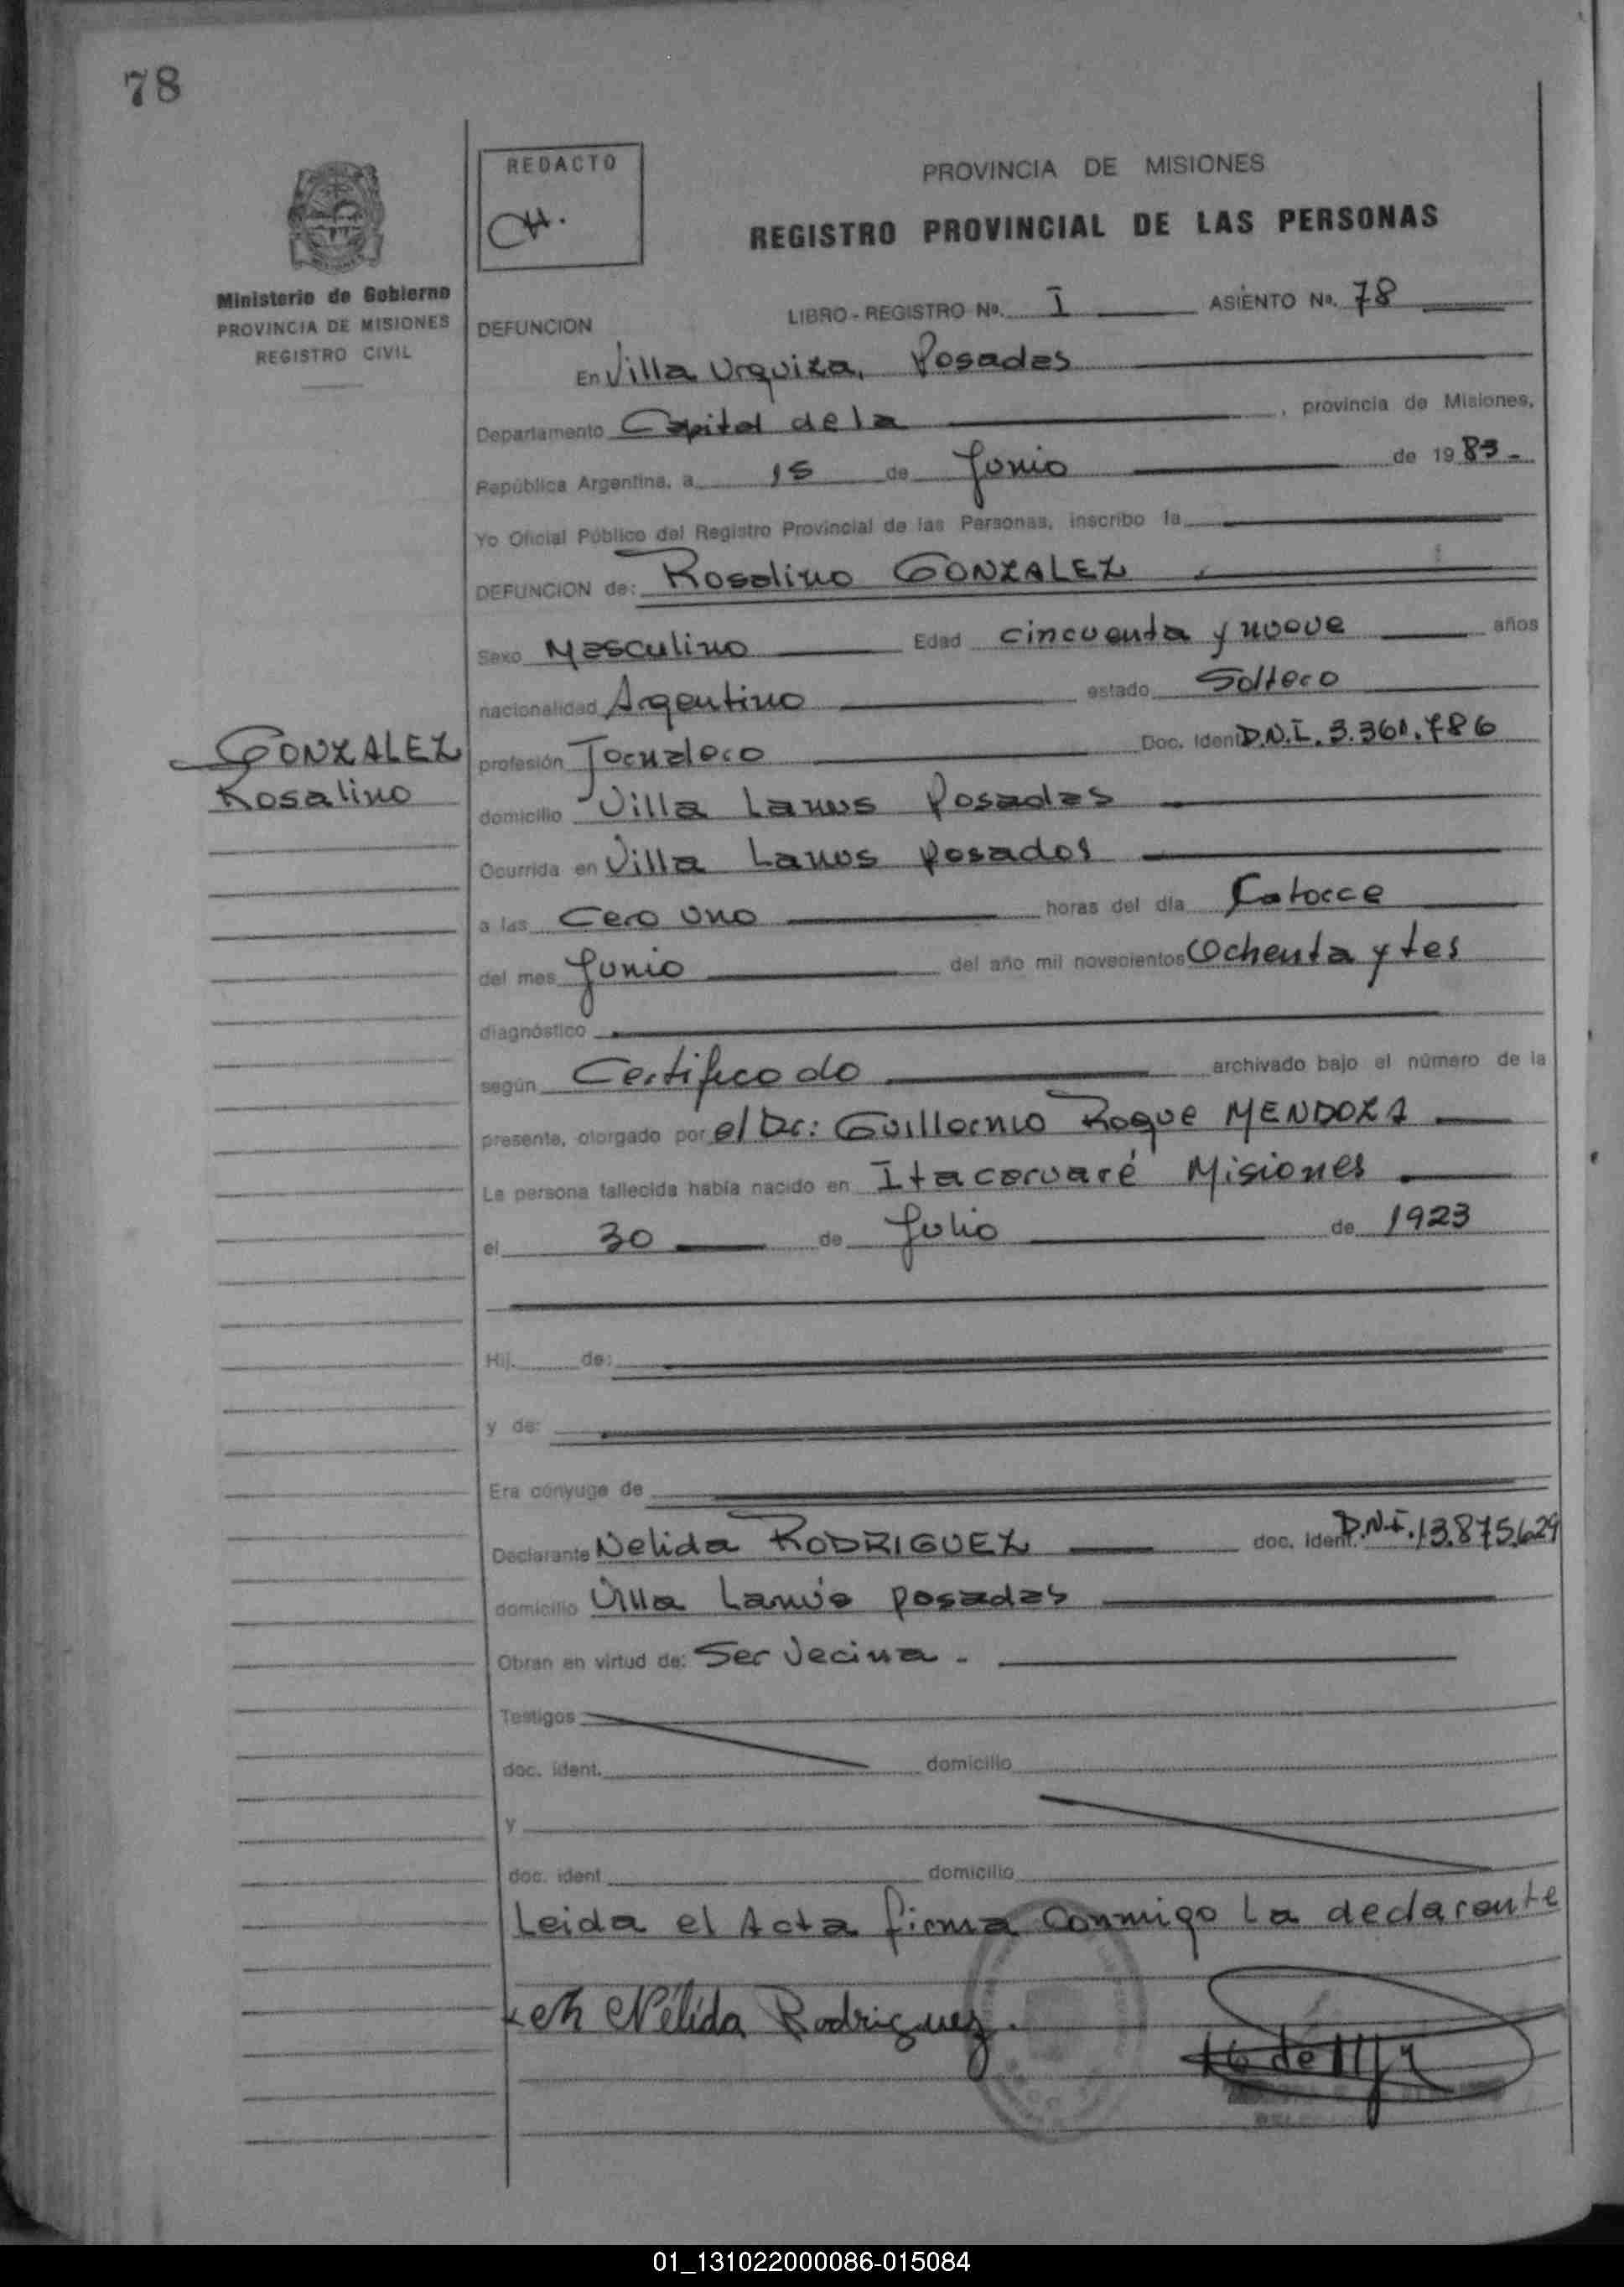 78
REDACTO
CH.
PROVINCIA DE MISIONES
REGISTRO PROVINCIAL DE LAS PERSONAS
Ministerio de Gobierno
PROVINCIA DE MISIONES
REGISTRO CIVIL
LIBRO - REGISTRO Nº. I ASIENTO Nº. 78
DEFUNCION
En Villa Urquiza, Posadas
Departamento Capital de la , provincia de Misiones,
República Argentina, a 15 de Junio de 1983-
Yo Oficial Público del Registro Provincial de las Personas, inscribo la
DEFUNCION de: Rosalino GONZALEZ
Sexo Masculino Edad cincuenta y nueve años
nacionalidad Argentino estado Soltero
GONZALEZ
Rosalino
profesión Jornalero Doc. Ident D.N.I. 3.360.786
domicilio Villa Lanus Posadas
Ocurrida en Villa Lanus Posadas
a las Cero uno horas del día Catorce
del mes Junio del año mil novecientos Ochenta y tes
diagnóstico
según Certificado archivado bajo el número de la
presente, otorgado por el Dr: Guillermo Roque MENDOZA
La persona fallecida había nacido en Itacaruaré Misiones
el 30 de Julio de 1923
Hij. de:
y de:
Era cónyuge de
Declarante Nelida RODRIGUEZ doc. Ident. D.N.I. 13.875.629
domicilio Villa Lanús posadas
Obran en virtud de: Ser Vecina.
Testigos
doc. ident. domicilio
y
doc. ident domicilio
Leida el Acta firma conmigo La declarante
Nélida Rodriguez.
01_131022000086-015084